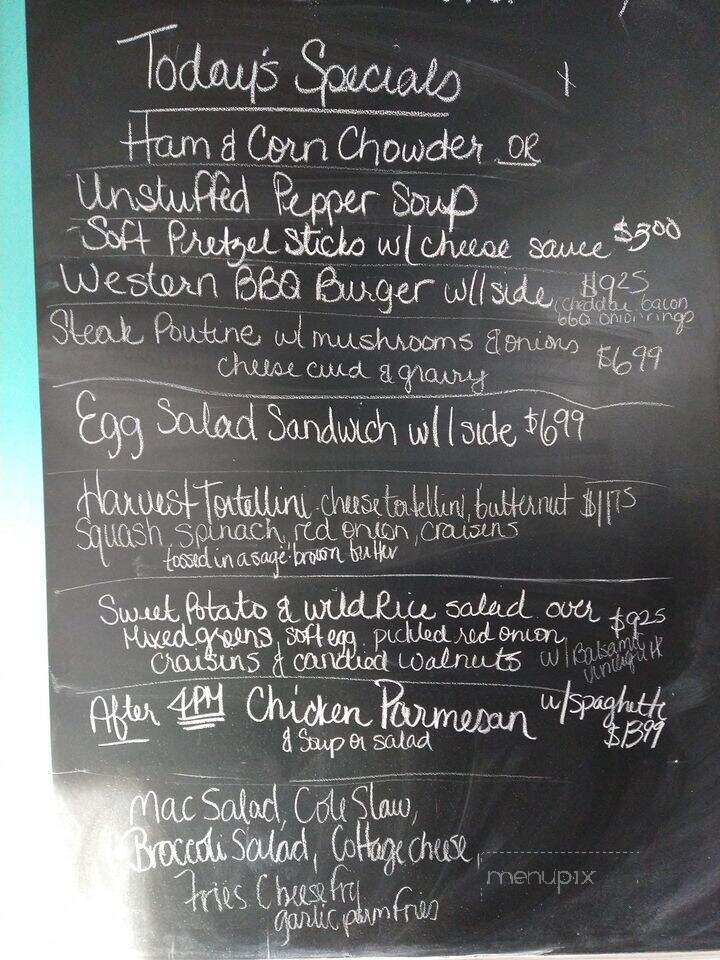 Today's Specials
Ham & Corn Chowder OR
Unstuffed Pepper Soup
Soft Pretzel Sticks w/ cheese sauce $5.00
Western BBQ Burger w/1 side $9.25
(cheddar bacon
BBQ onion rings
Steak Poutine w/ mushrooms & onions $6.99
cheese curd & gravy
Egg Salad Sandwich w/1 side $6.99
Harvest Tortellini cheese tortellini, butternut $11.75
Squash, spinach, red onion, craisins
tossed in a sage brown butter
Sweet Potato & wild Rice salad over $9.25
Mixed greens, soft egg, pickled red onion,
Craisins & candied walnuts w/ Balsamic
After 4PM Chicken Parmesan w/spaghetti
& Soup or salad $13.99
Mac Salad, Cole Slaw,
Broccoli Salad, Cottage cheese,
Fries Cheese fry
garlic parm fries
menupix